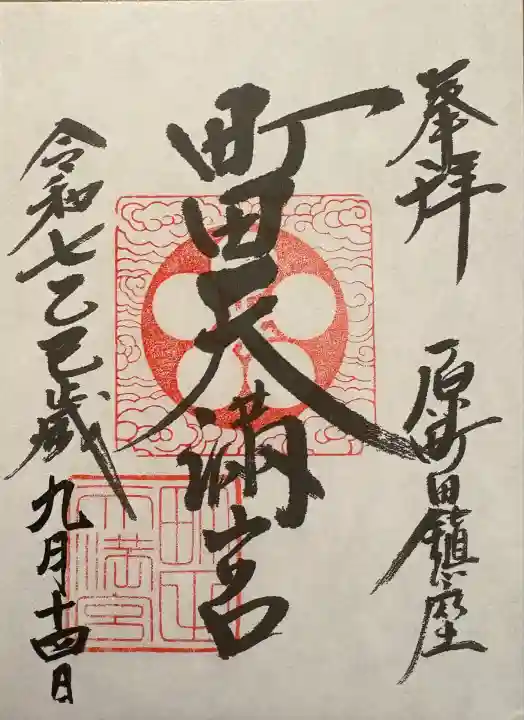 奉拝
原町田鎮座
町田天満宮
令和七乙巳歳
九月十四日
町田天満宮